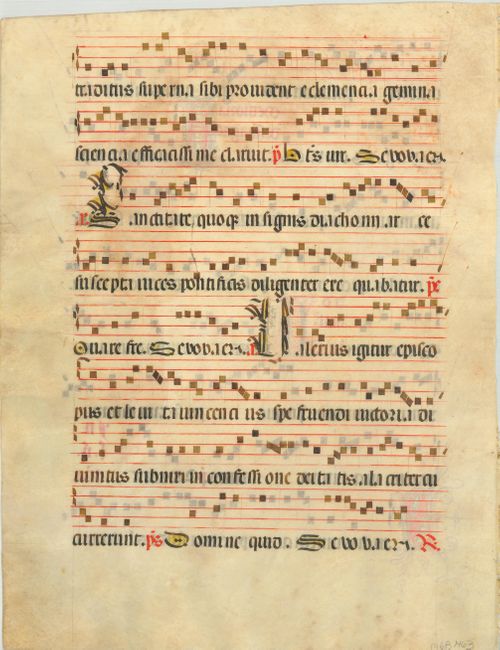 traditus superna sibi prouidente clemencia gemina
sciencia efficacissime claruit. p̄ Bt̄s uir. Seuouaen.
a. Sanctitate, quoqꝫ insignis diachonij arce
suscepta uices pontificis diligenter exequabatur. p̄s
Quare fre. Seuouaen. a. Ualerius igitur episco
pus et leuita uincencius spe fruendi uictoria di
uinitus subnixi in confessione deitatis alacriter cu
currerunt. p̄s Domine quid. Seuouaen. R.
1968.463